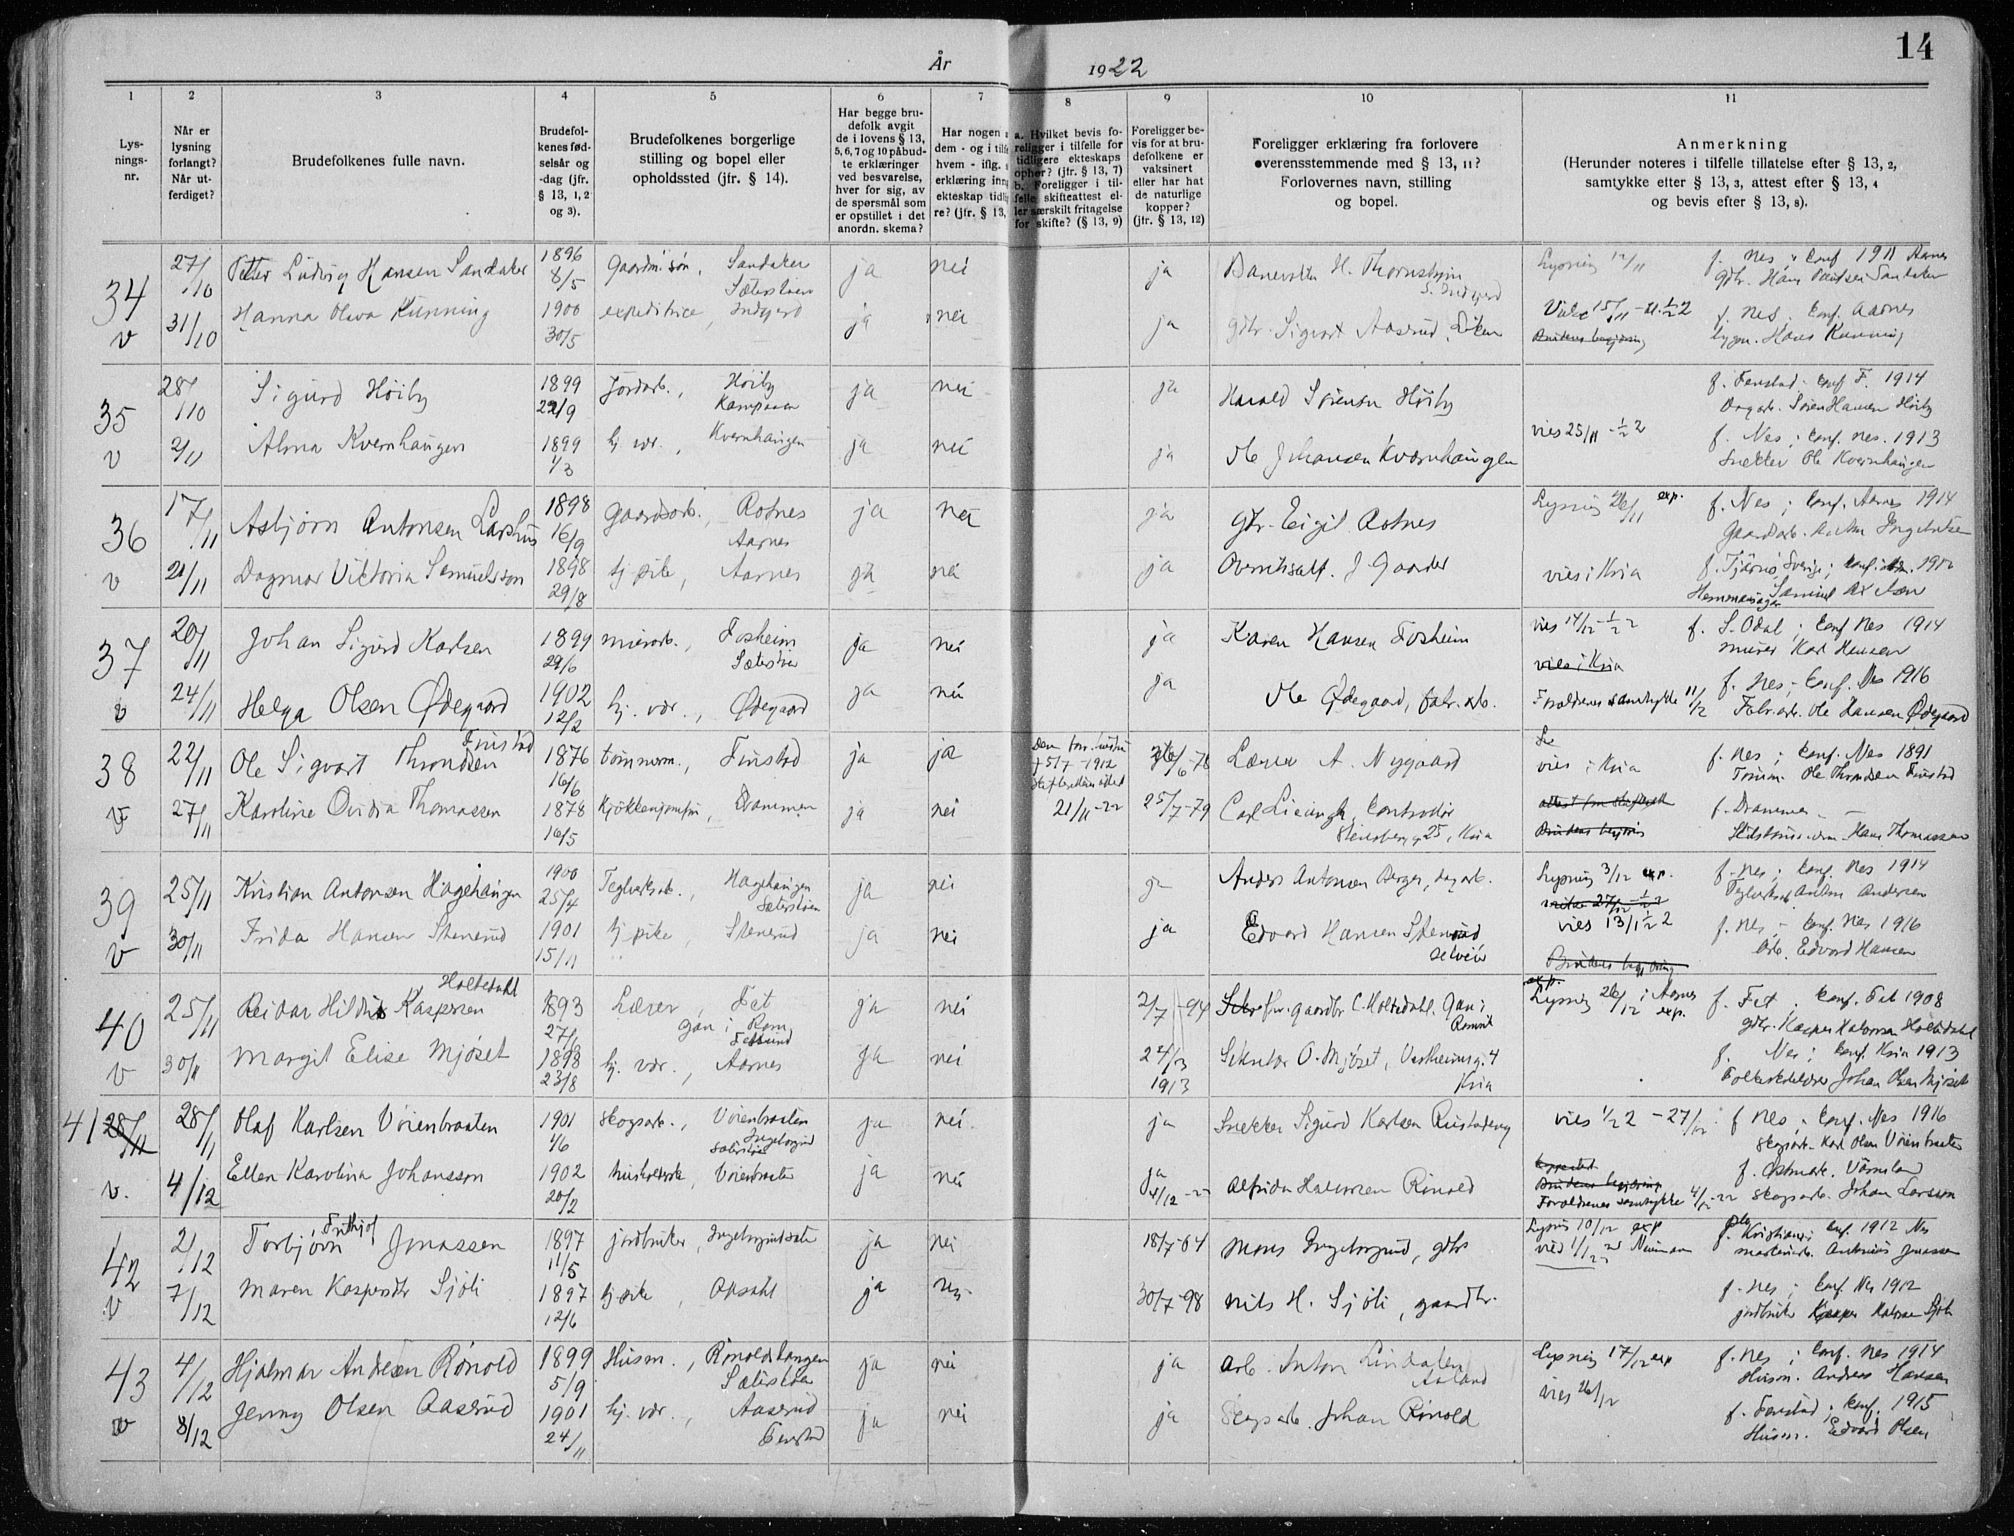 14
År 1922
1
2
3
4
5
6
7
8
9
10
11
Lys-
nings-
nr.
Når er
lysning
forlangt?
Når ut-
ferdiget?
Brudefolkenes fulle navn.
Brudefol-
kenes fød-
selsår og
-dag (jfr.
§ 13, 1, 2
og 3).
Brudefolkenes borgerlige
stilling og bopel eller
opholdssted (jfr. § 14).
Har begge bru-
defolk avgit
de i lovens § 13,
5, 6, 7 og 10 påbud-
te erklæringer
ved besvarelse,
hver for sig, av
de spørsmål som
er opstillet i det
anordn. skema?
Har nogen
dem - og i
hvem - iflg.
erklæring
ekteskap
re? (jfr. § 13,
a. Hvilket bevis fo-
religger i tilfelle for
tidligere ekteskaps
ophør? (jfr. § 13, 7)
b. Foreligger i til-
felle skifteattest el-
ler særskilt fritagelse
for skifte? (§ 13, 9)
Foreligger be-
vis for at bru-
defolkene er
vaksinert
eller har hat
de naturlige
kopper?
(jfr. § 13, 12)
Foreligger erklæring fra forlovere
overensstemmende med § 13, 11?
Forlovernes navn, stilling
og bopel.
Anmerkning
(Herunder noteres i tilfelle tillatelse efter § 13, 2,
samtykke efter § 13, 3, attest efter § 13, 4
og bevis efter § 13, 8).
34 27/10 Petter Ludvig Hansen Sandaker 1896 8/5 gaardm.søn, Sandaker Sæterstøen ja nei ja H. Thornstein Lysning 12/11 f. Nes, Conf 1911 Aarnes
gbr. Hans Sandaker
v 31/10 Hanna Oliva Kunning 1900 30/5 expeditrice, ja nei ja gbr. Sigvart Aaserud, Liken Viet 15/11 - 1/2 2 f. Nes, Conf. Aarnes
Brudens begjæring Hans Kunning
35 28/10 Sigurd Høiby 1899 22/9 Jordarb., Høiby Kampaaen ja nei ja Harald Sørensen Høiby f. Fenstad. Conf F. 1914
Dagarb. Søren Hansen Høiby
v 2/11 Alma Kvernhaugen 1899 1/3 hj. vær., Kvernhaugen ja nei ja Ole Johansen Kvernhaugen vies 25/11 - 1/2 2 f. Nes; Conf. Nes. 1913
Snekker Ole Kvernhaugen
36 17/11 Asbjørn Antonsen Larshus 1898 16/9 gaardsarb., Rotnes Aarnes ja nei ja gbr. Eigil Rotnes Lysning 26/11 exp. f. Nes; Conf. Aarnes 1914
Gaardsarb. Anton Ingebretsen
v 21/11 Dagmar Viktoria Samuelsson 1898 29/8 tj. pike, Aarnes ja nei ja J Gaarder vies i Kria f. Tjärnö, Sverige;
37 20/11 Johan Sigurd Karlsen 1899 29/6 murarb., Fosheim Sæterstøen ja nei ja Karen Hansen Fosheim vies 14/12 - 1/2 2 f. S. Odal; Conf Nes 1914
vies i Kria murer Karl Hansen
v 24/11 Helga Olsen Ødegaard 1902 12/2 hj. vær., Ødegaard ja nei ja Ole Ødegaard, fabr. arb. Forældrenes samtykke 11/12 f. Nes; Conf. Nes 1916
Fabr.arb. Ole Hansen Ødegaard
38 22/11 Ole Sigvart Throndsen Finstad 1876 16/6 tømmerm., Finstad ja ja 5/7 - 1912 Lærer A. Nygaard vies i Kria f. Nes; Conf. Nes 1891
Tømm. Ole Throndsen Finstad
v 27/11 Karoline Ovidia Thomassen 1878 16/5 Kjøkkenjomfru, Drammen ja nei 21/11 - 22 25/7 - 79 Carl Kontrollør Steensberg g. 25, Kria Brudens begjæring f. Drammen
Hans Thomassen
39 25/11 Kristian Antonsen Hagehaugen 1900 25/4 Teglverksarb., Hagehaugen Sæterstøen ja nei ja Anders Antonsen Berger, dagarb. Lysning 3/12 exp. f. Nes; Conf. Nes 1914
Teglverksarb Anton Andersen
v 30/11 Frida Hansen Stenerud 1901 15/11 tj. pike, Stenerud ja nei ja Edvard Hansen Stenerud selveier vies 13/1 1/2 2 f. Nes; Conf. Nes 1916
Brudens begjæring Arb. Edvard Hansen
40 25/11 Reidar Hildus Kaspersen Holtedahl 1893 Lærer, Fet ja nei 2/7 - 94 gaardbr. C. Holtedahl, Gan; Lysning 26/12 i Aarnes exp. f. Fet. Conf. Fet 1908
gbr. Kasper Halvorsen Holtedahl
v 30/11 Margit Elise Mjøset 1898 23/8 hj. vær., Aarnes ja nei 1913 Sekretær O. Mjøset, Vestheimsg. 4 Kria f. Nes; Conf. Kria 1913
Folkeskolelærer Johan Olsen Mjøset
41 28/11 28/11 Olaf Karlsen Vøienbraaten 1901 1/6 skogsarb., Vøienbraaten Ingeborgrud Sæterstøen ja nei ja Snekker Sigurd Karlsen vies 1/2 2 - 27/12 f Nes; Conf. Nes 1916
skogsarb. Karl Olsen Vøienbraaten
v. 4/12 Ellen Karolina Johansson 1902 20/2 Vøienbraaten ja nei ja 4/12 - 22 Alfrida Halvorsen Rønold Brudens begjæring f. Østmark. Värmland
Forældrenes samtykke 4/12 - 22 skogsarb. Johan Larsson
42 2/12 Torbjørn Frithjof Jonassen 1897 11/5 jordbruker, ja nei 18/7 - 04 Mons Ingeborgrud, gbr Lysning 10/12 exp f. Kristiania; Conf. 1912 Nes
Antonius Jonassen
v 7/12 Maren Kaspersdtr Sjøli 1897 12/6 tj. pike, Opsahl ja nei 30/7 - 98 Nils H. Sjøli, gaardbr. f. Nes; Conf. Nes 1912
jordbruker Kasper Halvorsen Sjøli
43 4/12 Hjalmar Andersen Rønold 1899 5/9 Husm., Rønoldshaugen Sæterstøen ja nei ja Arb. Anton Lindalen Lysning 17/12 exp f. Nes; Conf. Nes 1914
vies 26/12 Husm. Andreas Hansen
v 8/12 Jenny Olsen Aaserud 1901 24/11 hj. vær., Aaserud Fenstad ja nei ja Skogsarb. Johan Rønold f. Fenstad; Conf. 1915
Husm. Edvard Olsen